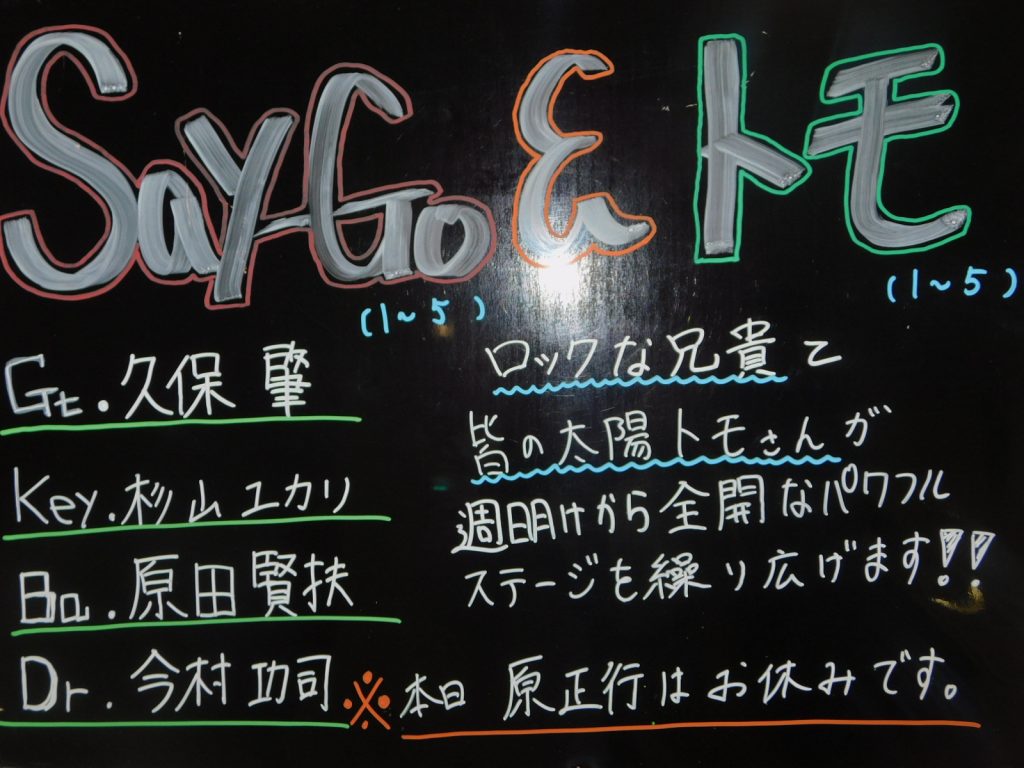 Say-Go & トモ
(1~5) (1~5)
Gt.久保 肇
Key.杉山ユカリ
Ba.原田賢扶
Dr.今村功司
ロックな兄貴と
皆の太陽トモさんが
週明けから全開なパワフル
ステージを繰り広げます!!
※本日 原正行はお休みです。